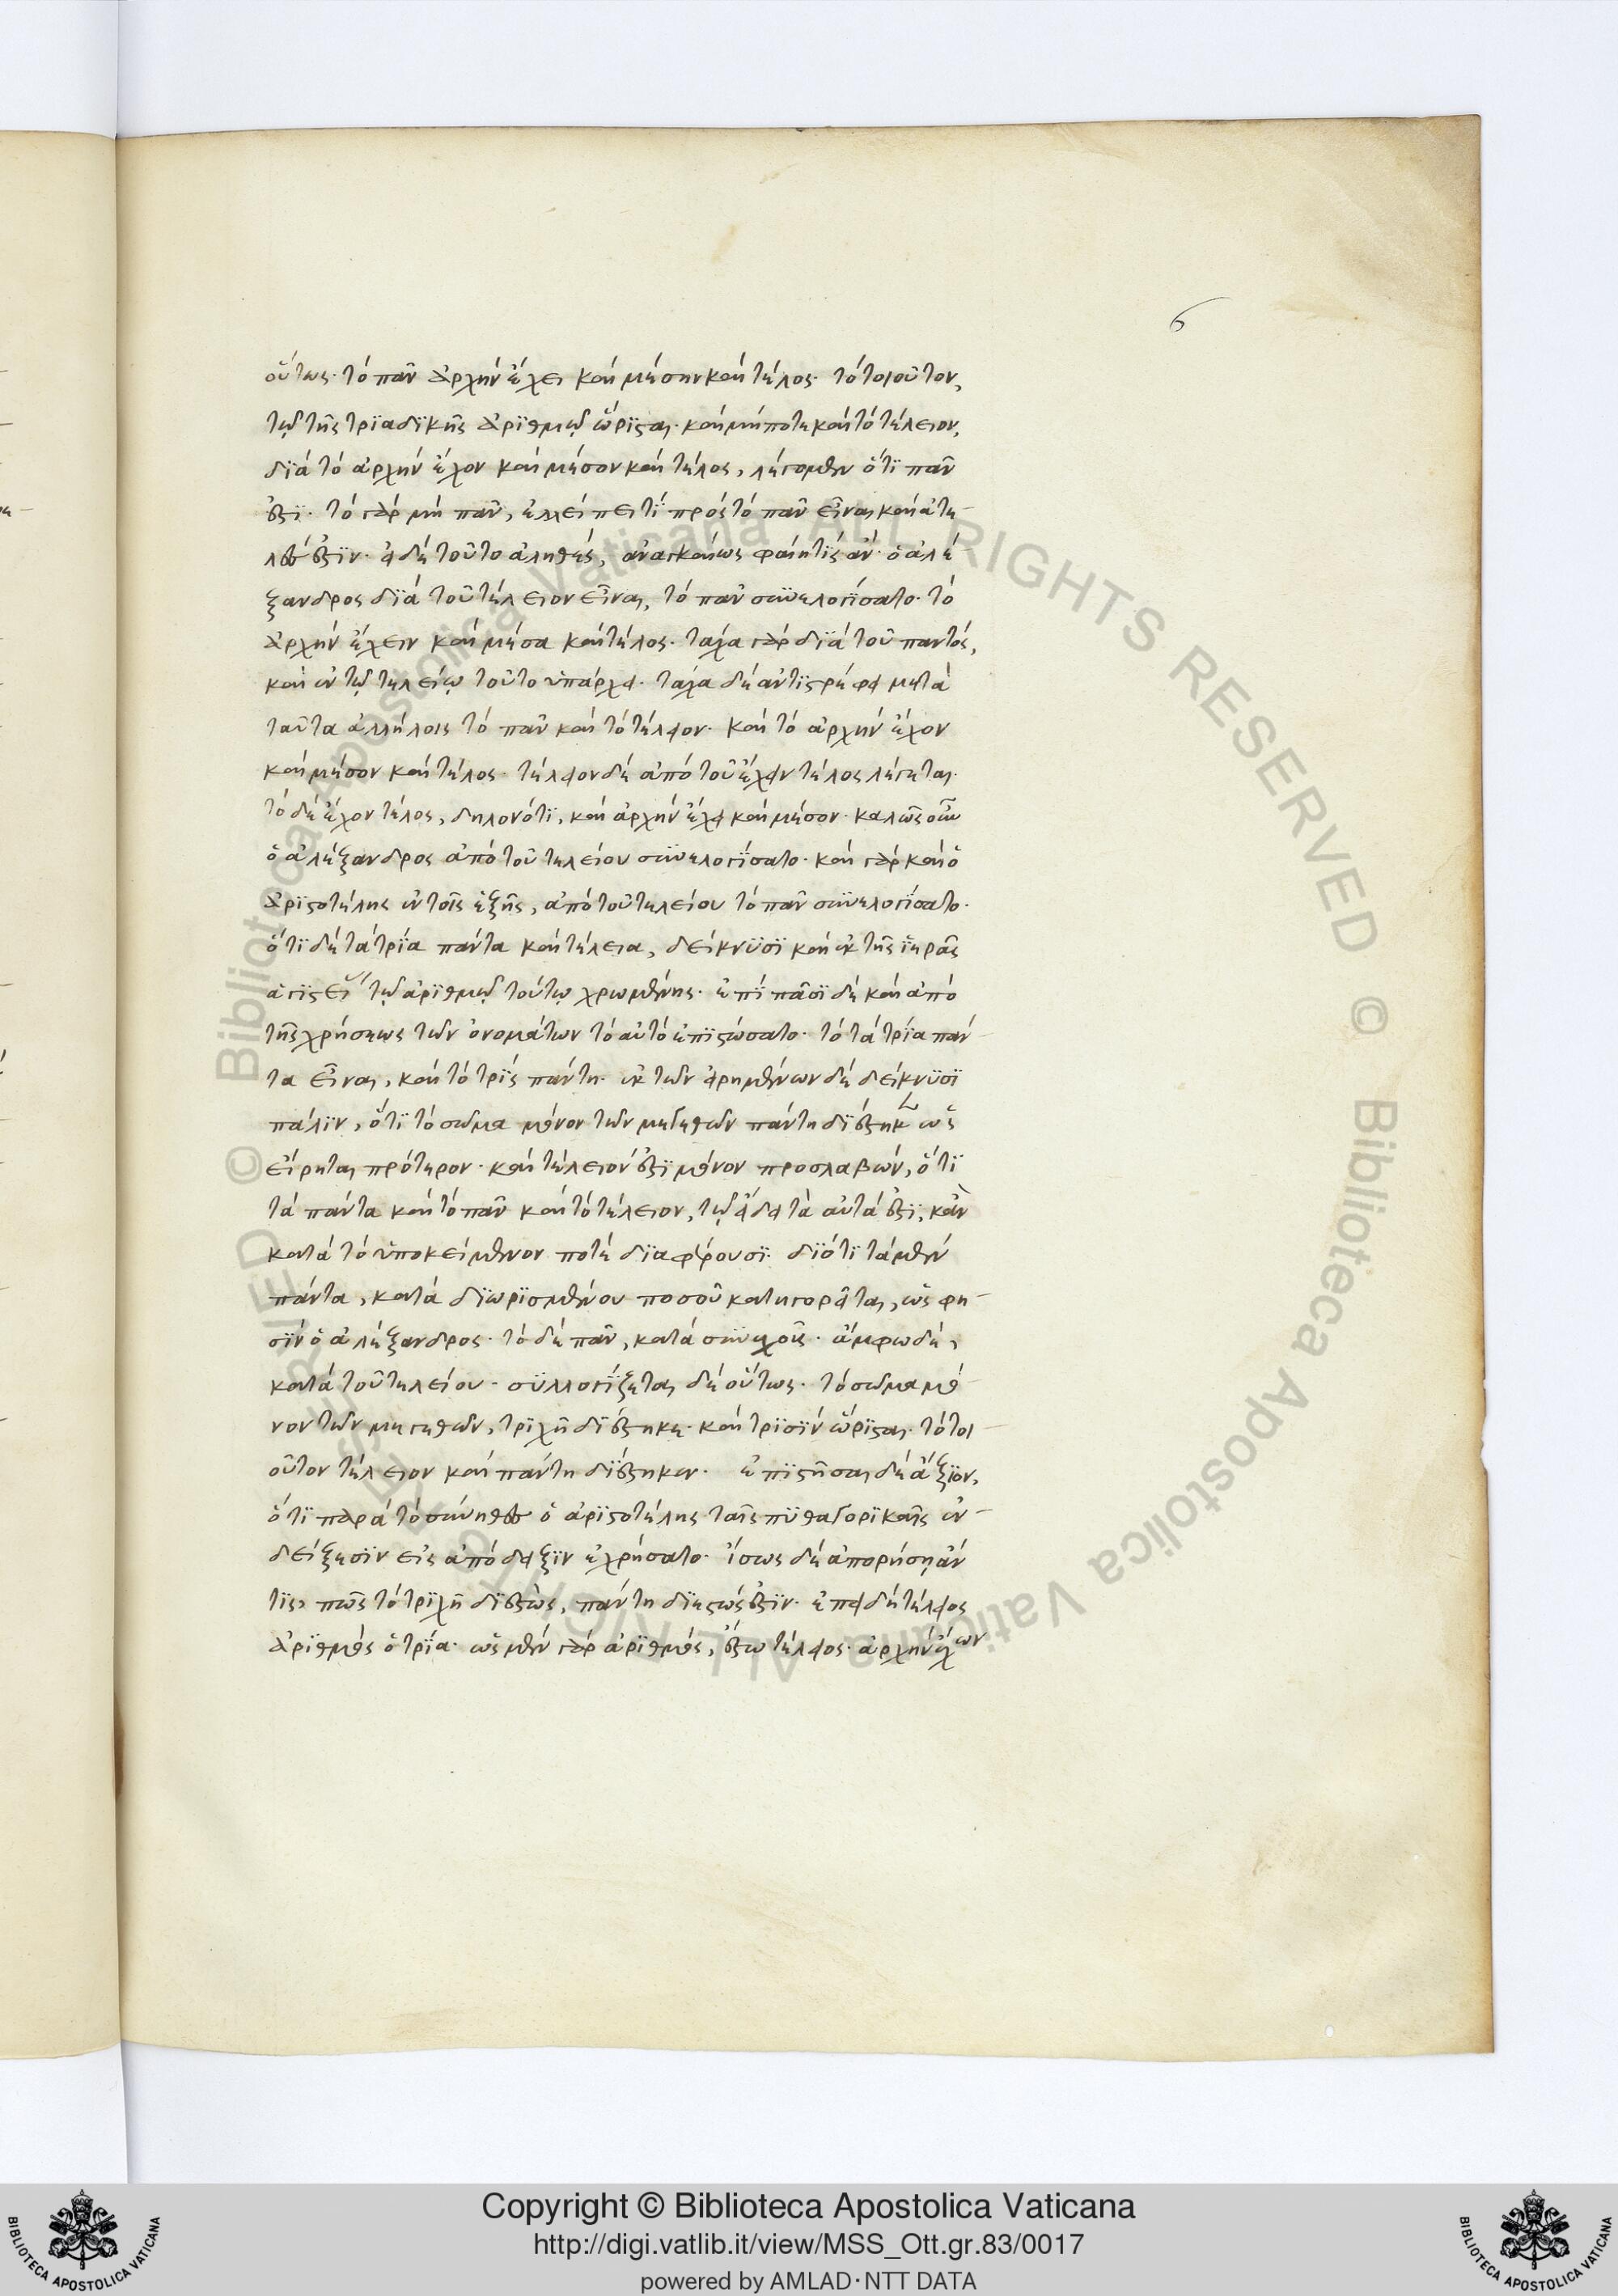 6
οὕτως· τὸ πᾶν ἀρχὴν ἔχει καὶ μέσην καὶ τέλος· τὸ τοιοῦτον,
τῷ τῆς τριαδικῆς ἀριθμῷ ὥρισται· καὶ μήποτε καὶ τὸ τέλειον,
διὰ τὸ ἀρχὴν ἔχον καὶ μέσον καὶ τέλος, λέγομεν ὅτι πᾶν
ἐστι· τὸ γὰρ μὴ πᾶν, ἐλλείπει τί πρὸς τὸ πᾶν εἶναι καὶ ἀτε-
λές ἐστιν· εἰ δὲ τοῦτο ἀληθές, ἀναγκαίως φαίη τὶς ἄν· ὁ ἀλέ-
ξανδρος διὰ τοῦ τέλειον εἶναι, τὸ πᾶν συνελογίσατο· τὸ
ἀρχὴν ἔχειν καὶ μέσα καὶ τέλος· τάχα γὰρ διὰ τοῦ παντός,
καὶ ἐν τῷ τελείῳ τοῦτο ὑπάρχει· τάχα δὲ ἀντιστρέφει μετὰ
ταῦτα ἀλλήλοις τὸ πᾶν καὶ τὸ τέλειον· καὶ τὸ ἀρχὴν ἔχον
καὶ μέσον καὶ τέλος· τέλειον δὲ ἀπὸ τοῦ ἔχειν τέλος λέγεται·
τὸ δὲ ἔχον τέλος, δηλονότι, καὶ ἀρχὴν ἔχει καὶ μέσον· καλῶς οὖν
ὁ ἀλέξανδρος ἀπὸ τοῦ τελείου συνελογίσατο· καὶ γὰρ καὶ ὁ
ἀριστοτέλης ἐν τοῖς ἑξῆς, ἀπὸ τοῦ τελείου τὸ πᾶν συνελογίσατο·
ὅτι δὲ τὰ τρία πάντα καὶ τέλεια, δείκνυσι καὶ ἐκ τῆς ἱερᾶς
ἁγιστείας τῷ ἀριθμῷ τούτῳ χρωμένης· ἐπὶ πᾶσι δὲ καὶ ἀπὸ
τῆς χρήσεως τῶν ὀνομάτων τὸ αὐτὸ ἐπιστώσατο· τὸ τὰ τρία πάν-
τα εἶναι, καὶ τὸ τρὶς πάντη· ἐκ τῶν εἰρημένων δὲ δείκνυσι
πάλιν, ὅτι τὸ σῶμα μόνον τῶν μεγεθῶν πάντη διέστηκεν ὡς
εἴρηται πρότερον· καὶ τέλειόν ἐστι μόνον προσλαβών, ὅτι
τὰ πάντα καὶ τὸ πᾶν καὶ τὸ τέλειον, τῷ εἴδει τὰ αὐτά ἐστι, κἂν
κατὰ τὸ ὑποκείμενον ποτὲ διαφέρουσι· διότι τὰ μὲν
πάντα, κατὰ διωρισμένου ποσοῦ κατηγορεῖται, ὥς φη-
σιν ὁ ἀλέξανδρος· τὸ δὲ πᾶν, κατὰ συνεχοῦς· ἄμφω δὲ,
κατὰ τοῦ τελείου· συλλογίζεται δὲ οὕτως· τὸ σῶμα μό-
νον τῶν μεγεθῶν, τριχῆ διέστηκε· καὶ τρισὶν ὥρισται· τὸ τοι-
οῦτον τέλειον καὶ πάντη διέστηκεν· ἐπιστῆσαι δὲ ἄξιον,
ὅτι παρὰ τὸ σύνηθες ὁ ἀριστοτέλης ταῖς πυθαγορικαῖς ἐν-
δείξεσιν εἰς ἀπόδειξιν ἐχρήσατο· ἴσως δὲ ἀπορήσῃ ἄν
τις, πῶς τὸ τριχῆ διεστὼς, πάντη διεστώς ἐστιν· ἐπειδὴ τέλειος
ἀριθμὸς ὁ τρία· ὡς μὲν γὰρ ἀριθμός, ἔστω τέλειος· ἀρχὴν ἔχων